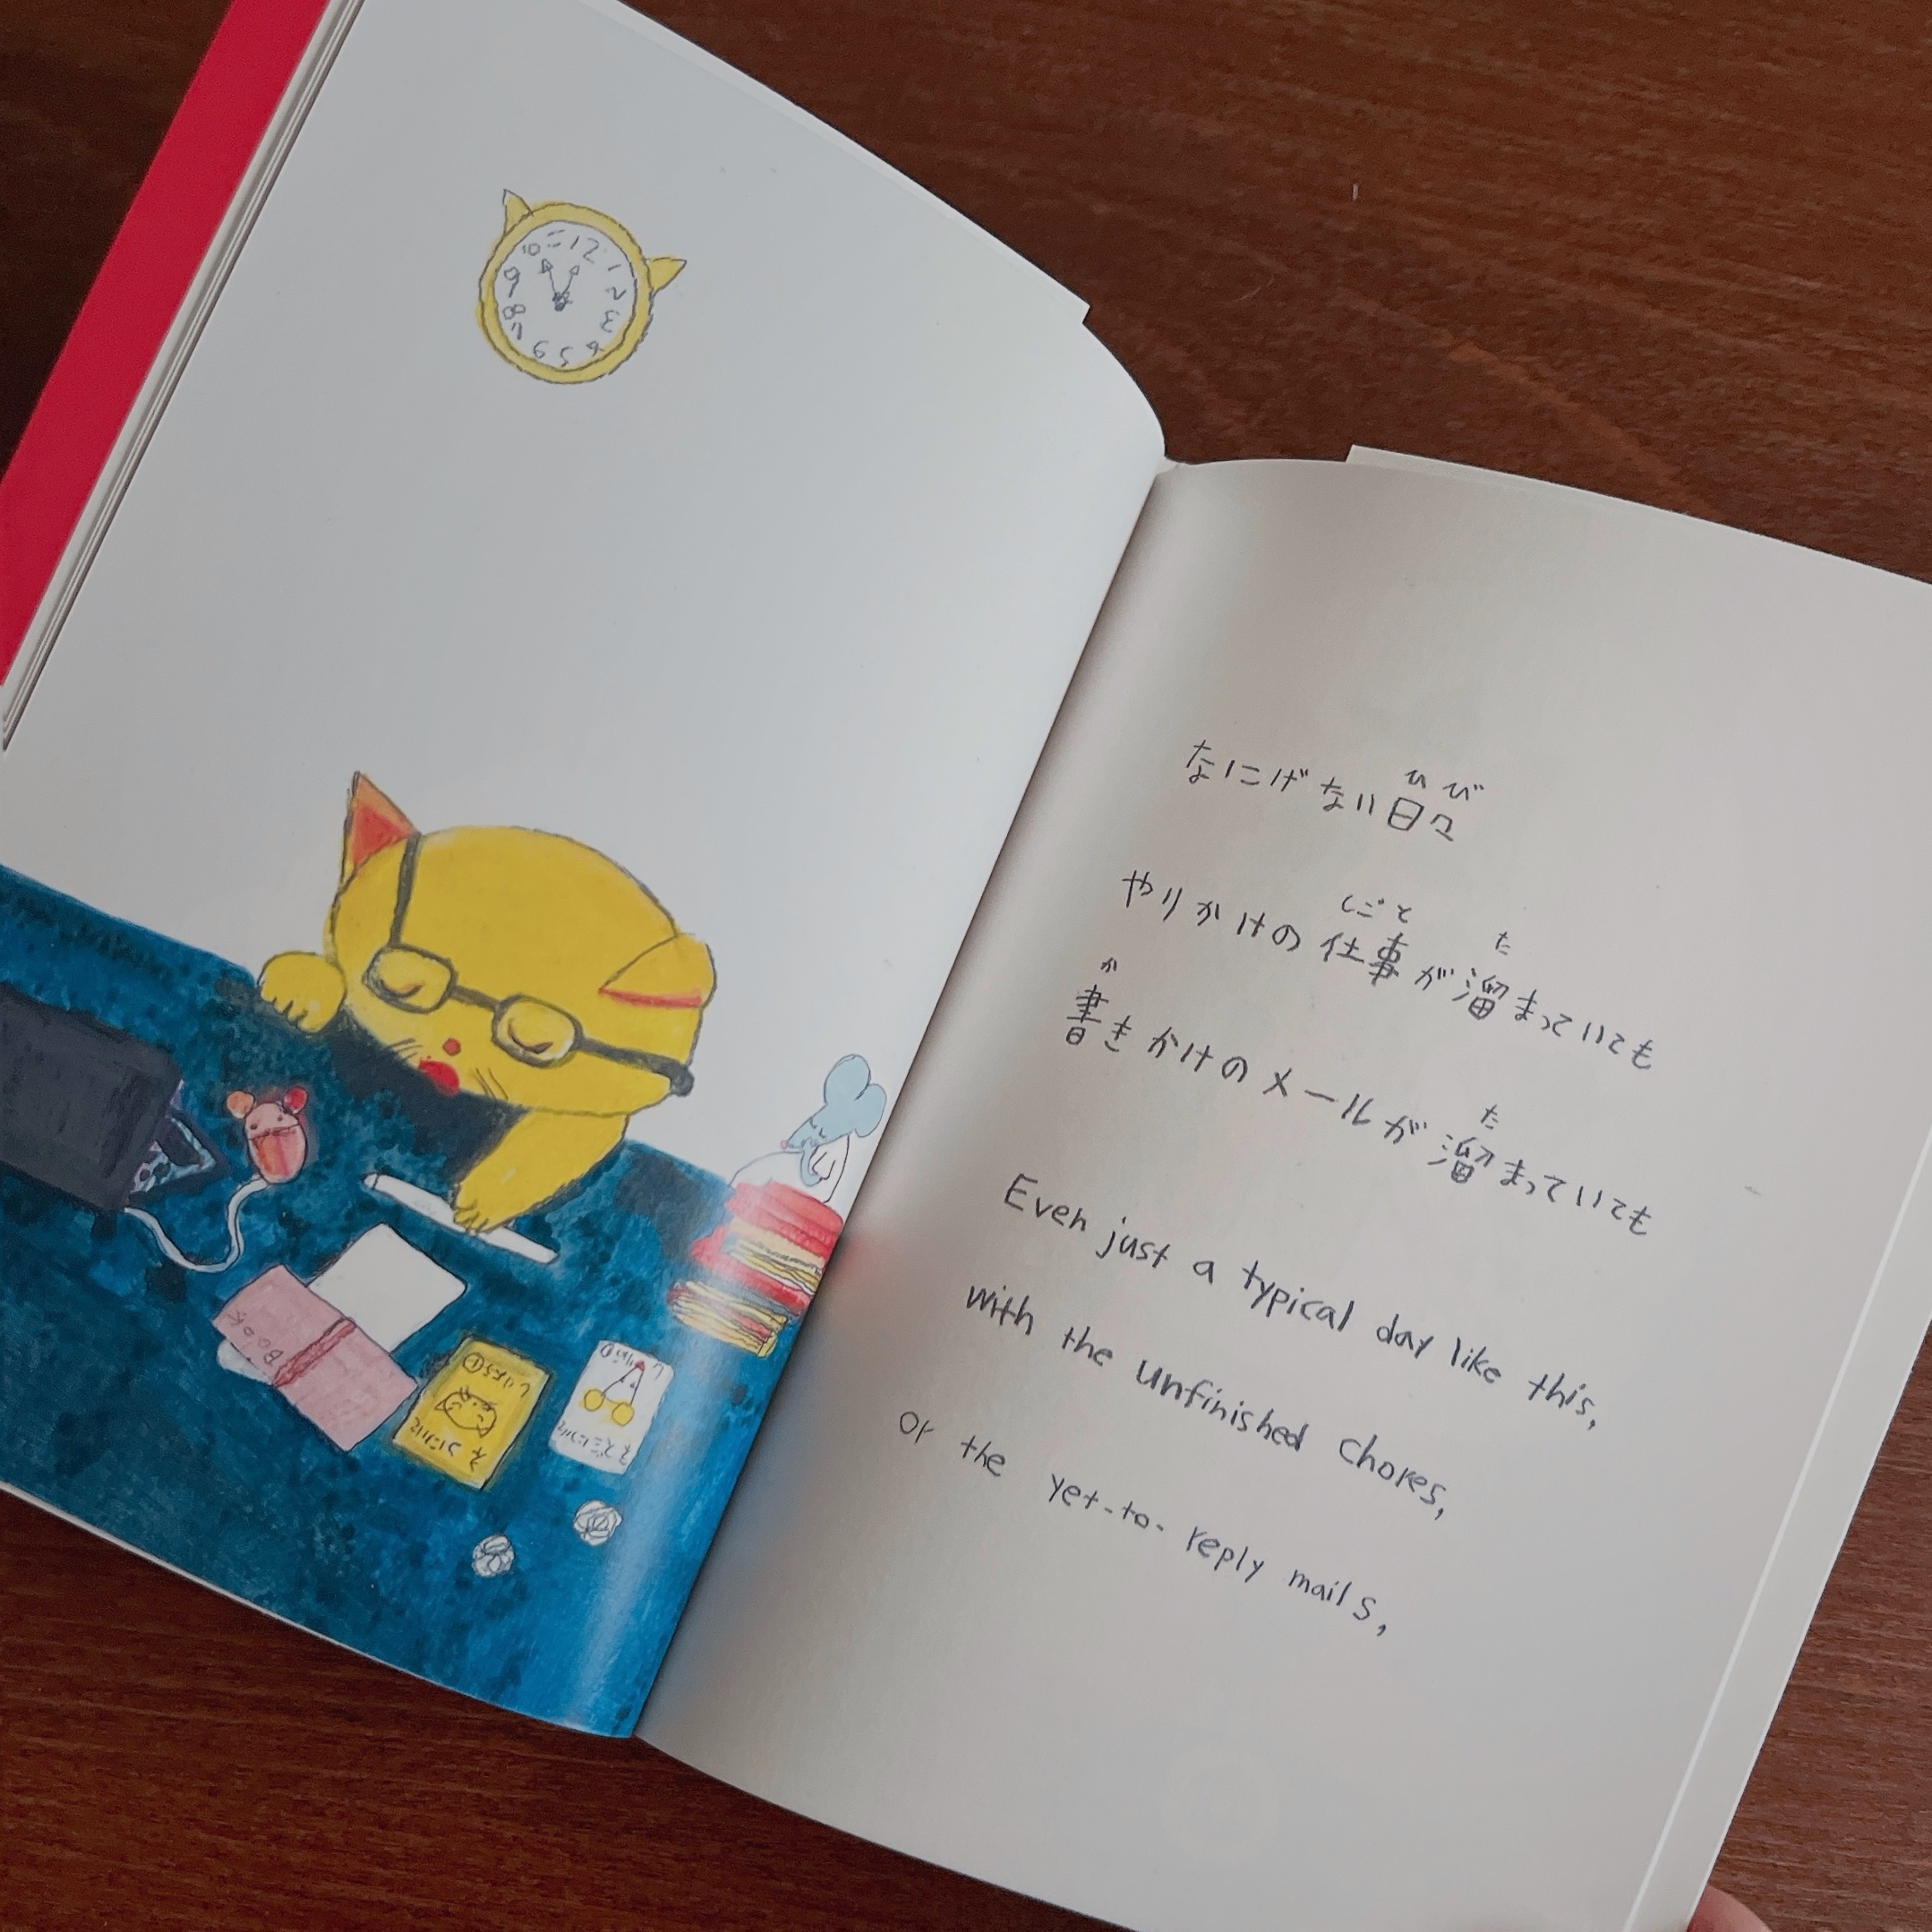 12
1
2
3
4
5
6
7
8
9
10
11
Book
なにげない日々
ひび
やりかけの仕事が溜まっていても
しごと
た
書きかけのメールが溜まっていても
か
た
Even just a typical day like this,
with the unfinished chores,
Or the yet-to-reply mails,